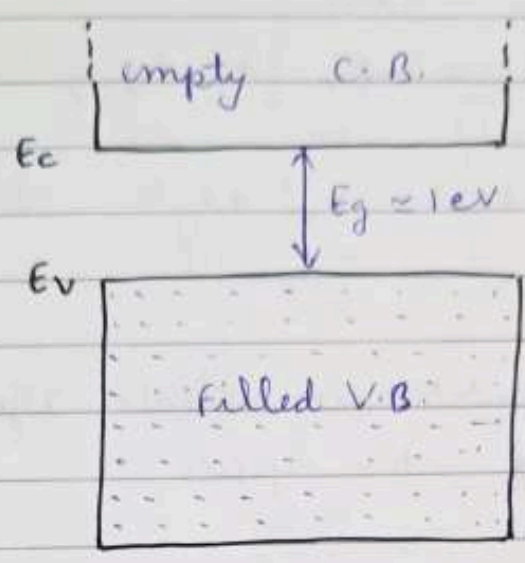 empty C.B.
Ec
Eg ≃ 1 eV
Ev
Filled V.B.